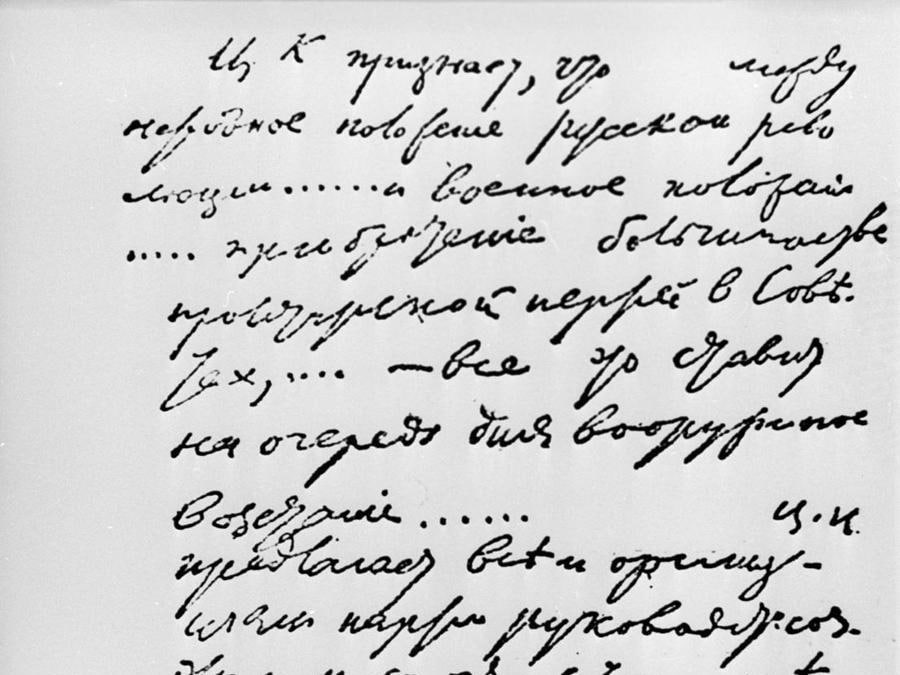 Ц К признает, что между
народное положение русской рево
люции......и военное положение
..... приобретение большинства
пролетарской партіей в Совѣ.
тах,.... — все это ставит
на очередь дня вооруженное
возстаніе...... Ц.К.
предлагает всѣм организ–
аціям партіи